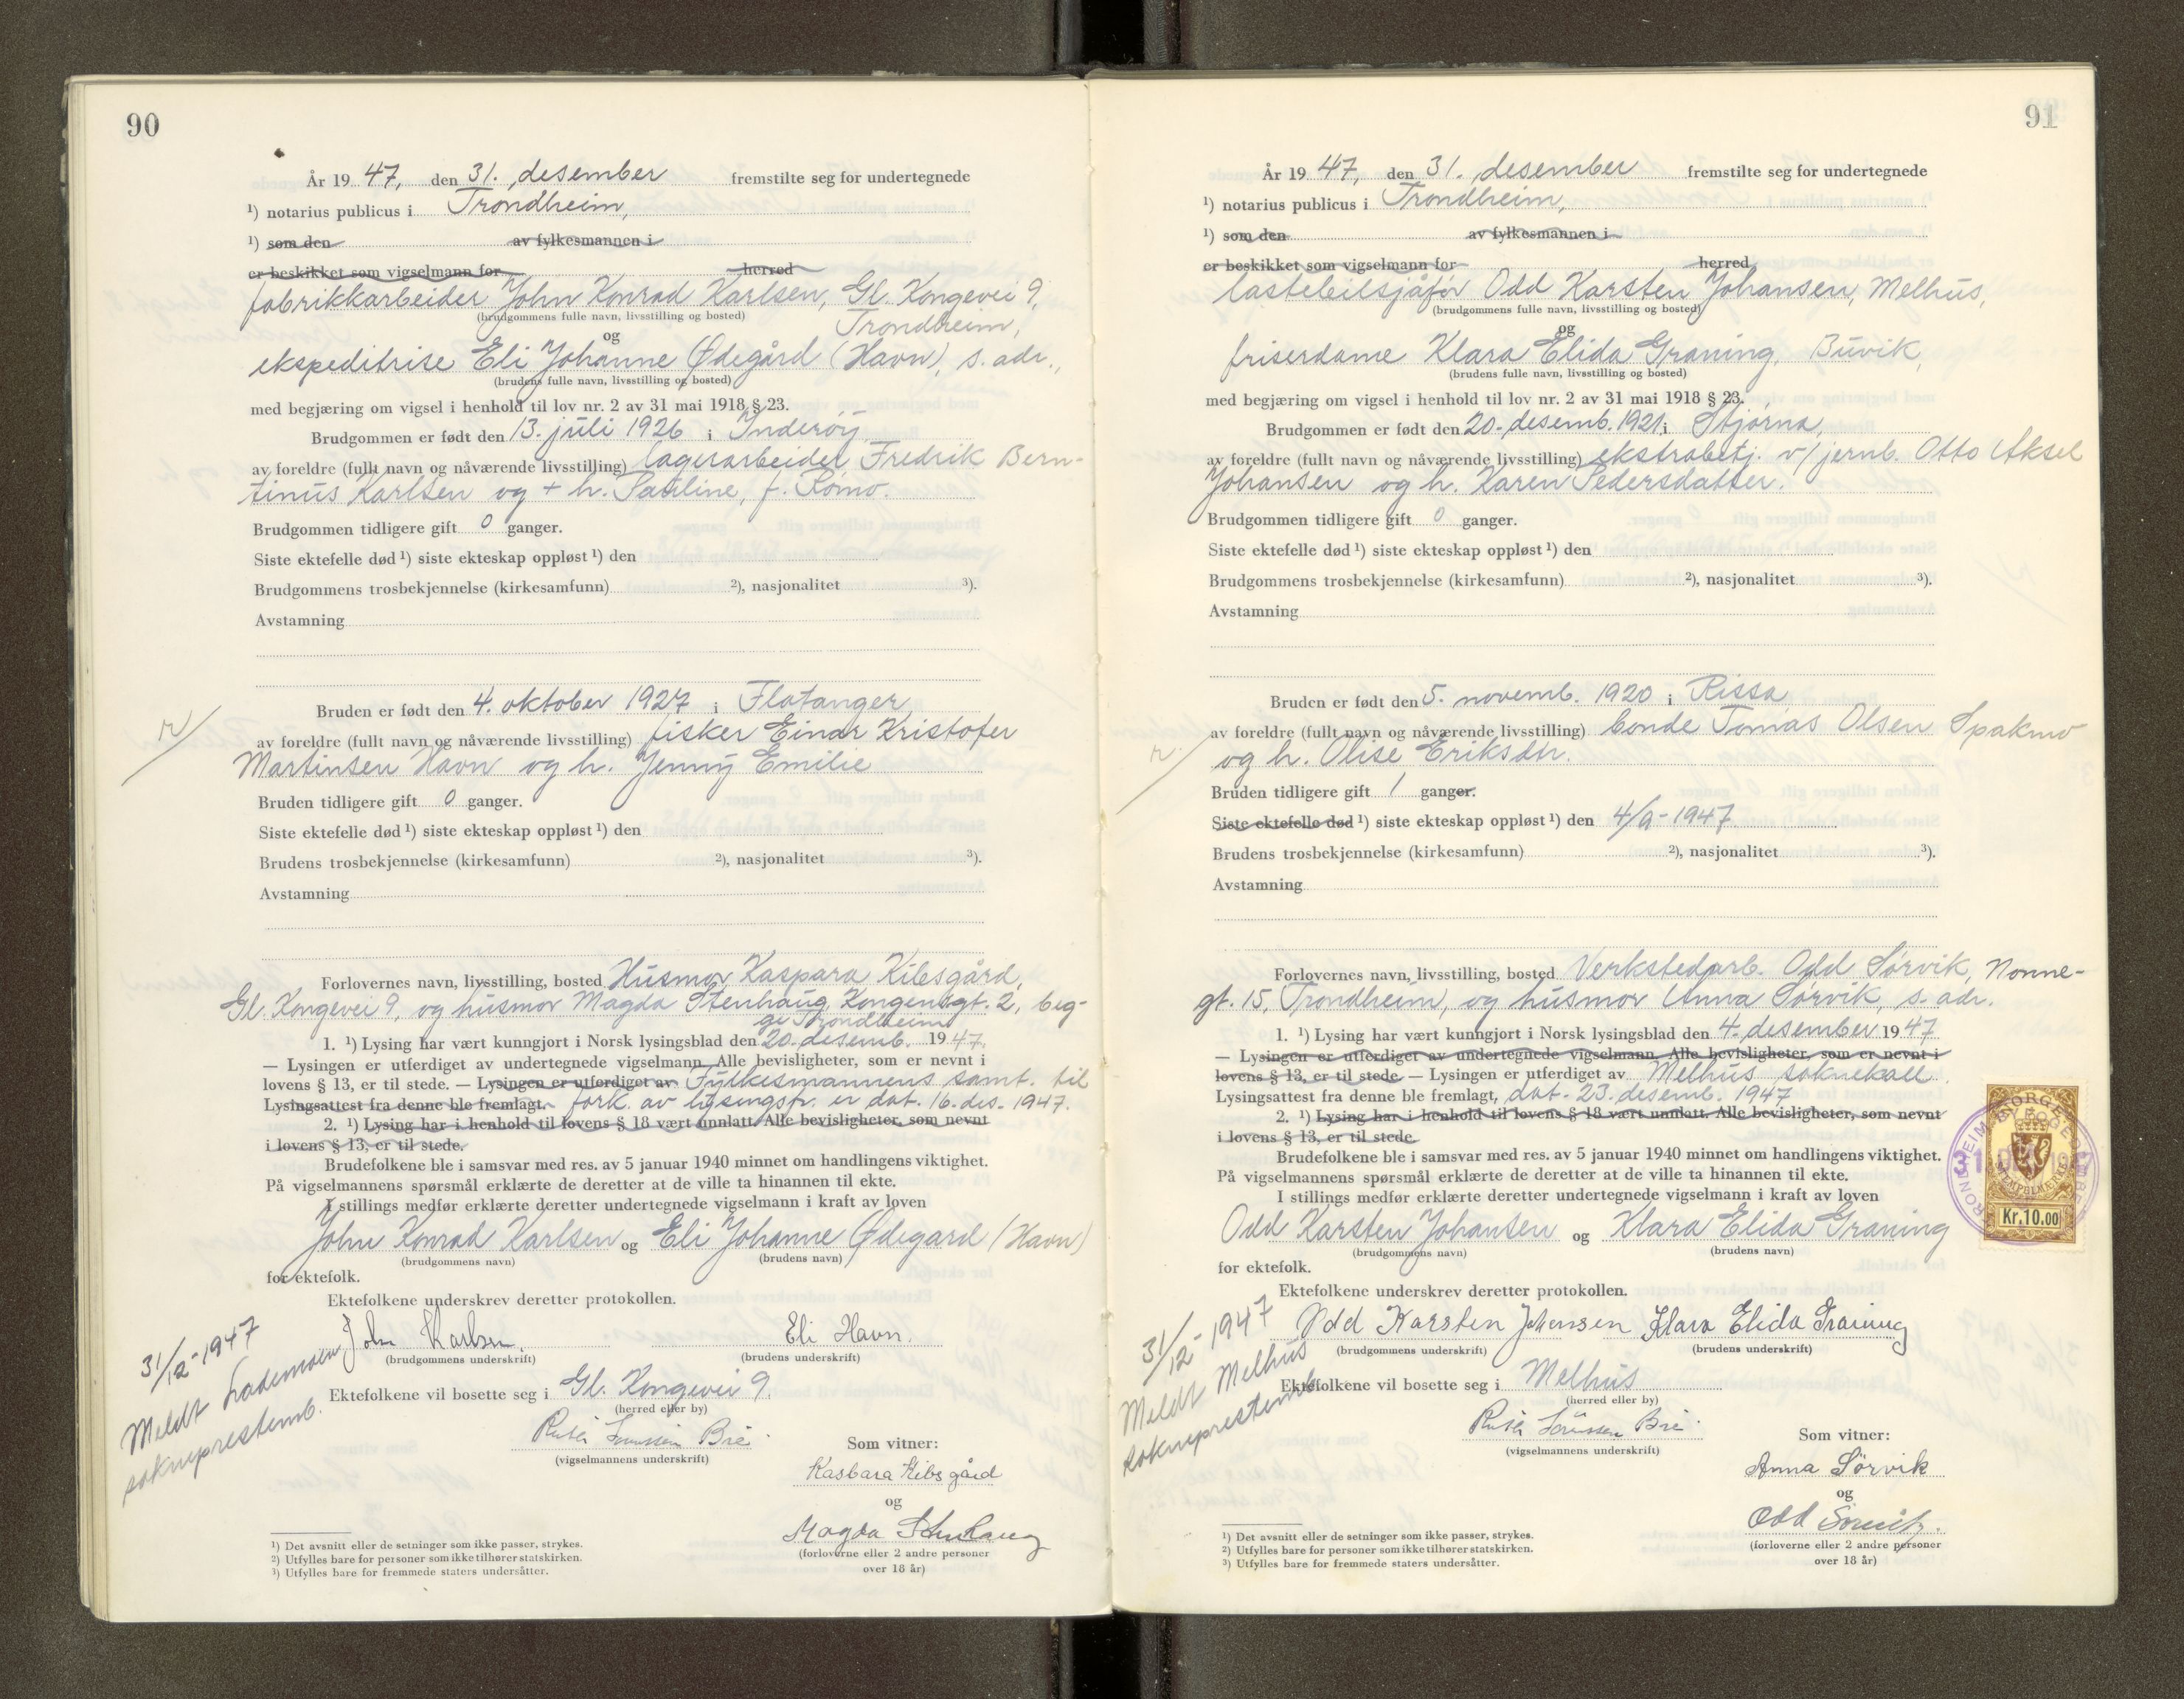 90
År 19 47, den 31. desember fremstilte seg for undertegnede
¹) notarius publicus i Trondheim,
¹) som den av fylkesmannen i
er beskikket som vigselmann for herred
fabrikkarbeider John Konrad Karlsen, Gl. Kongevei 9,
(brudgommens fulle navn, livsstilling og bosted) Trondheim,
og
ekspeditrise Eli Johanne Ødegård (Havn), s. adr.,
(brudens fulle navn, livsstilling og bosted)
med begjæring om vigsel i henhold til lov nr. 2 av 31 mai 1918 § 23.
Brudgommen er født den 13. juli 1926 i Inderøy
av foreldre (fullt navn og nåværende livsstilling) lagerarbeider Fredrik Bern-
tinus Karlsen og + h. Pauline, f. Rømo.
Brudgommen tidligere gift 0 ganger.
Siste ektefelle død ¹) siste ekteskap oppløst ¹) den
Brudgommens trosbekjennelse (kirkesamfunn) ²), nasjonalitet ³).
Avstamning
Bruden er født den 4. oktober 1927 i Flatanger
av foreldre (fullt navn og nåværende livsstilling) fisker Einar Kristofer
Martinsen Havn og h. Jenny Emilie
Bruden tidligere gift 0 ganger.
Siste ektefelle død ¹) siste ekteskap oppløst ¹) den
Brudens trosbekjennelse (kirkesamfunn) ²), nasjonalitet ³).
Avstamning
Forlovernes navn, livsstilling, bosted Husmor Kaspara Kibsgård,
Gl. Kongevei 9, og husmor Magda Stenhaug, Kongensgt. 2, beg-
ge Trondheim
1. ¹) Lysing har vært kunngjort i Norsk lysingsblad den 20. desemb. 19 47.
— Lysingen er utferdiget av undertegnede vigselmann. Alle bevisligheter, som er nevnt i
lovens § 13, er til stede. — Lysingen er utferdiget av Fylkesmannens samt. til
Lysingsattest fra denne ble fremlagt. fork. av lysingsfr. er dat. 16. des. 1947.
2. ¹) Lysing har i henhold til lovens § 18 vært unnlatt. Alle bevisligheter, som nevnt
i lovens § 13, er til stede.
Brudefolkene ble i samsvar med res. av 5 januar 1940 minnet om handlingens viktighet.
På vigselmannens spørsmål erklærte de deretter at de ville ta hinannen til ekte.
I stillings medfør erklærte deretter undertegnede vigselmann i kraft av loven
John Konrad Karlsen og Eli Johanne Ødegard (Havn)
(brudgommens navn) (brudens navn)
for ektefolk.
Ektefolkene underskrev deretter protokollen.
John Karlsen. Eli Havn.
(brudgommens underskrift) (brudens underskrift)
31/12-1947
Meldt Lademoen
sokneprestemb.
Ektefolkene vil bosette seg i Gl. Kongevei 9
(herred eller by)
(vigselmannens underskrift)
Som vitner:
Kasbara Kibsgård
og
Magda Stenhaug
(forloverne eller 2 andre personer
over 18 år)
¹) Det avsnitt eller de setninger som ikke passer, strykes.
²) Utfylles bare for personer som ikke tilhører statskirken.
³) Utfylles bare for fremmede staters undersåtter.
91
År 19 47, den 31. desember fremstilte seg for undertegnede
¹) notarius publicus i Trondheim,
¹) som den av fylkesmannen i
er beskikket som vigselmann for herred
lastebilsjåfør Odd Karsten Johansen, Melhus,
(brudgommens fulle navn, livsstilling og bosted)
og
friserdame Klara Elida Graning, Buvik,
(brudens fulle navn, livsstilling og bosted)
med begjæring om vigsel i henhold til lov nr. 2 av 31 mai 1918 § 23.
Brudgommen er født den 20. desemb. 1921 i Stjørna,
av foreldre (fullt navn og nåværende livsstilling) ekstrabetj. v/ jernb. Otto Aksel
Johansen og h. Karen Pedersdatter.
Brudgommen tidligere gift 0 ganger.
Siste ektefelle død ¹) siste ekteskap oppløst ¹) den
Brudgommens trosbekjennelse (kirkesamfunn) ²), nasjonalitet ³).
Avstamning
Bruden er født den 5. novemb. 1920 i Rissa
av foreldre (fullt navn og nåværende livsstilling) bonde Tomas Olsen Spakmo
og h. Olise Eriksdtr.
Bruden tidligere gift 1 ganger.
Siste ektefelle død ¹) siste ekteskap oppløst ¹) den 4/9-1947
Brudens trosbekjennelse (kirkesamfunn) ²), nasjonalitet ³).
Avstamning
Forlovernes navn, livsstilling, bosted Verkstedarb. Odd Sørvik, Nonne-
gt. 15, Trondheim, og husmor Anna Sørvik, s. adr.
1. ¹) Lysing har vært kunngjort i Norsk lysingsblad den 4. desember 19 47
— Lysingen er utferdiget av undertegnede vigselmann. Alle bevisligheter, som er nevnt i
lovens § 13, er til stede. — Lysingen er utferdiget av Melhus soknekall
Lysingsattest fra denne ble fremlagt, dat. 23. desemb. 1947
2. ¹) Lysing har i henhold til lovens § 18 vært unnlatt. Alle bevisligheter, som nevnt
i lovens § 13, er til stede.
Brudefolkene ble i samsvar med res. av 5 januar 1940 minnet om handlingens viktighet.
På vigselmannens spørsmål erklærte de deretter at de ville ta hinannen til ekte.
I stillings medfør erklærte deretter undertegnede vigselmann i kraft av loven
Kr. 10.00
Odd Karsten Johansen og Klara Elida Graning
(brudgommens navn) (brudens navn)
for ektefolk.
Ektefolkene underskrev deretter protokollen.
Odd Karsten Johansen Klara Elida Graning
(brudgommens underskrift) (brudens underskrift)
31/12-1947
Meldt Melhus
sokneprestemb.
Ektefolkene vil bosette seg i Melhus
(herred eller by)
(vigselmannens underskrift)
Som vitner:
Anna Sörvik
og
Odd Sörvik.
(forloverne eller 2 andre personer
over 18 år)
¹) Det avsnitt eller de setninger som ikke passer, strykes.
²) Utfylles bare for personer som ikke tilhører statskirken.
³) Utfylles bare for fremmede staters undersåtter.